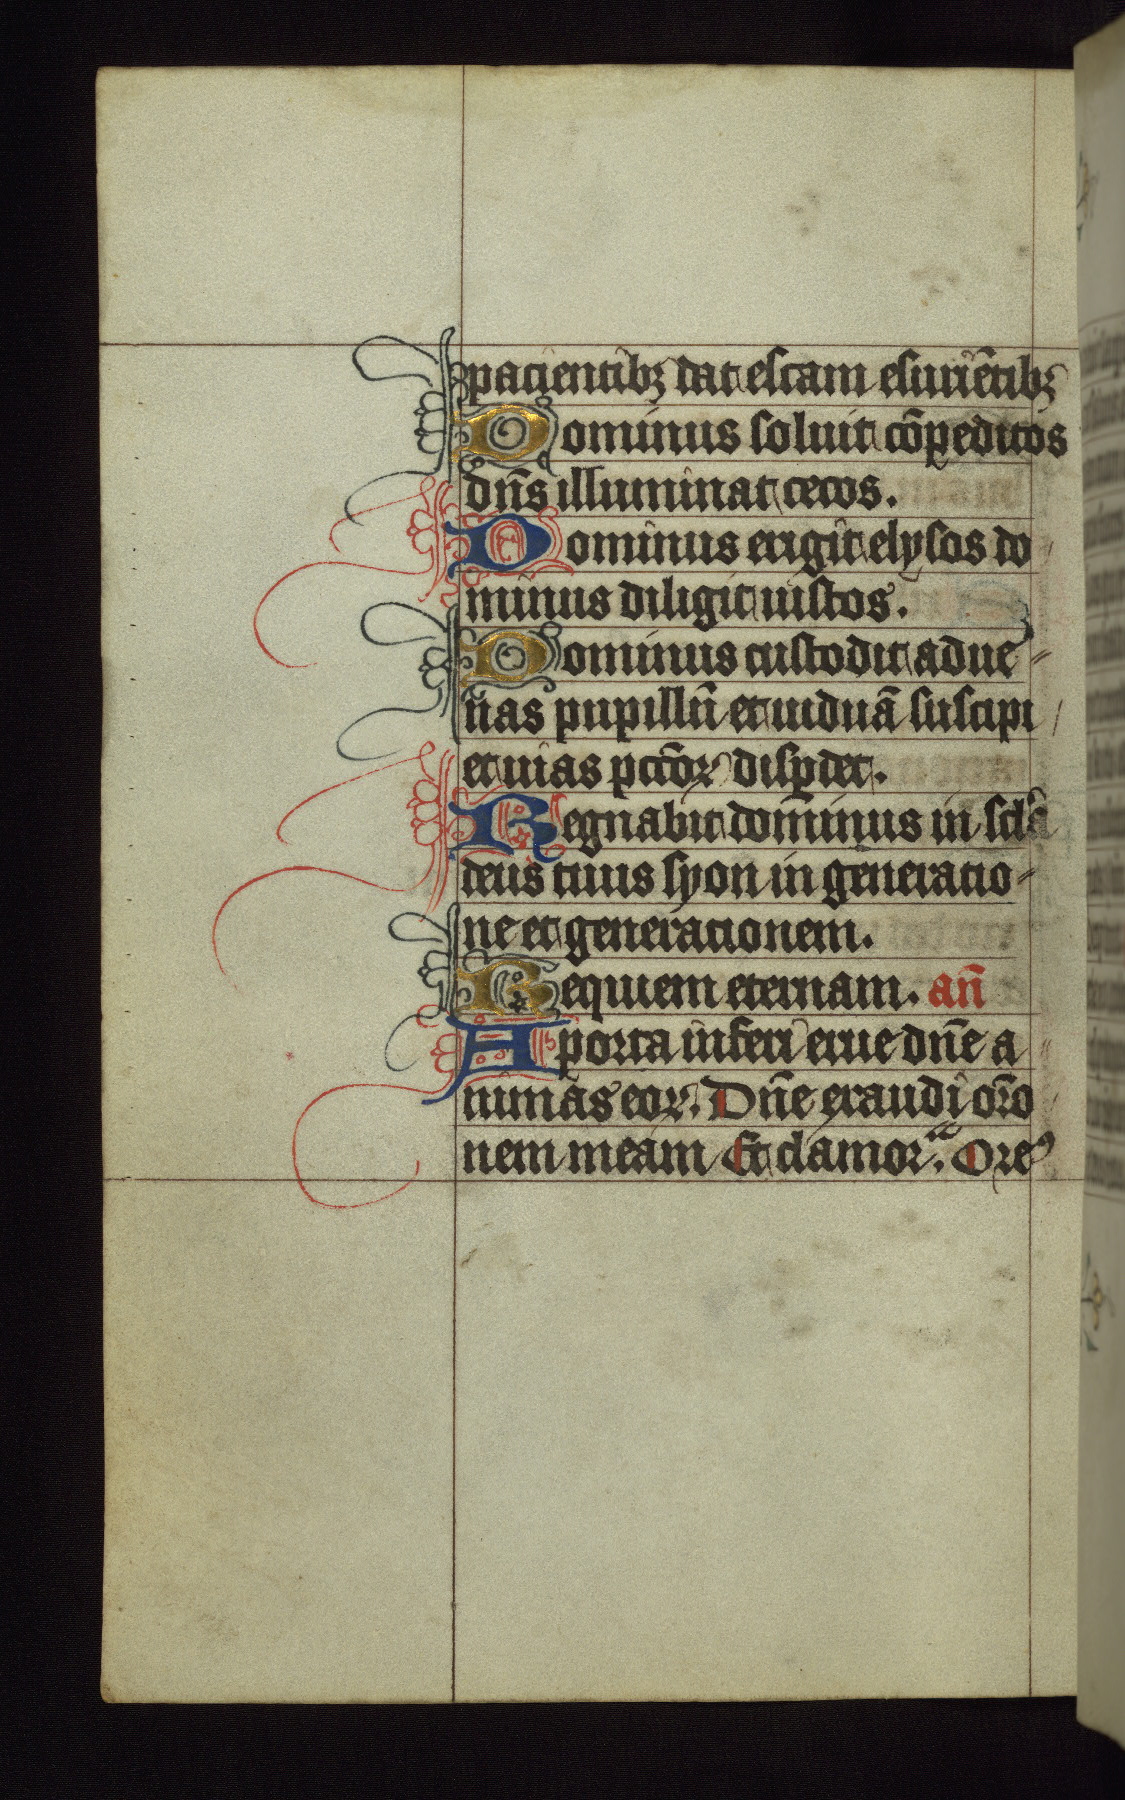 pacientibꝫ dat escam esuriẽtibꝫ
Dominus soluit cõpeditos
dñs illuminat cecos.
Dominus erigit elysos do
minus diligit iustos.
Dominus custodit adue
nas pupillũ et uiduã suscipi
et uias pctõꝝ dispdet.
Regnabit dominus in scla
deus tuus syon in generatio-
ne et generationem.
Requiem eternam. añ
A porta inferi erue dñe a
nimas eoꝝ. Dñe exaudi orõ
nem meam Et clamor. Orẽ